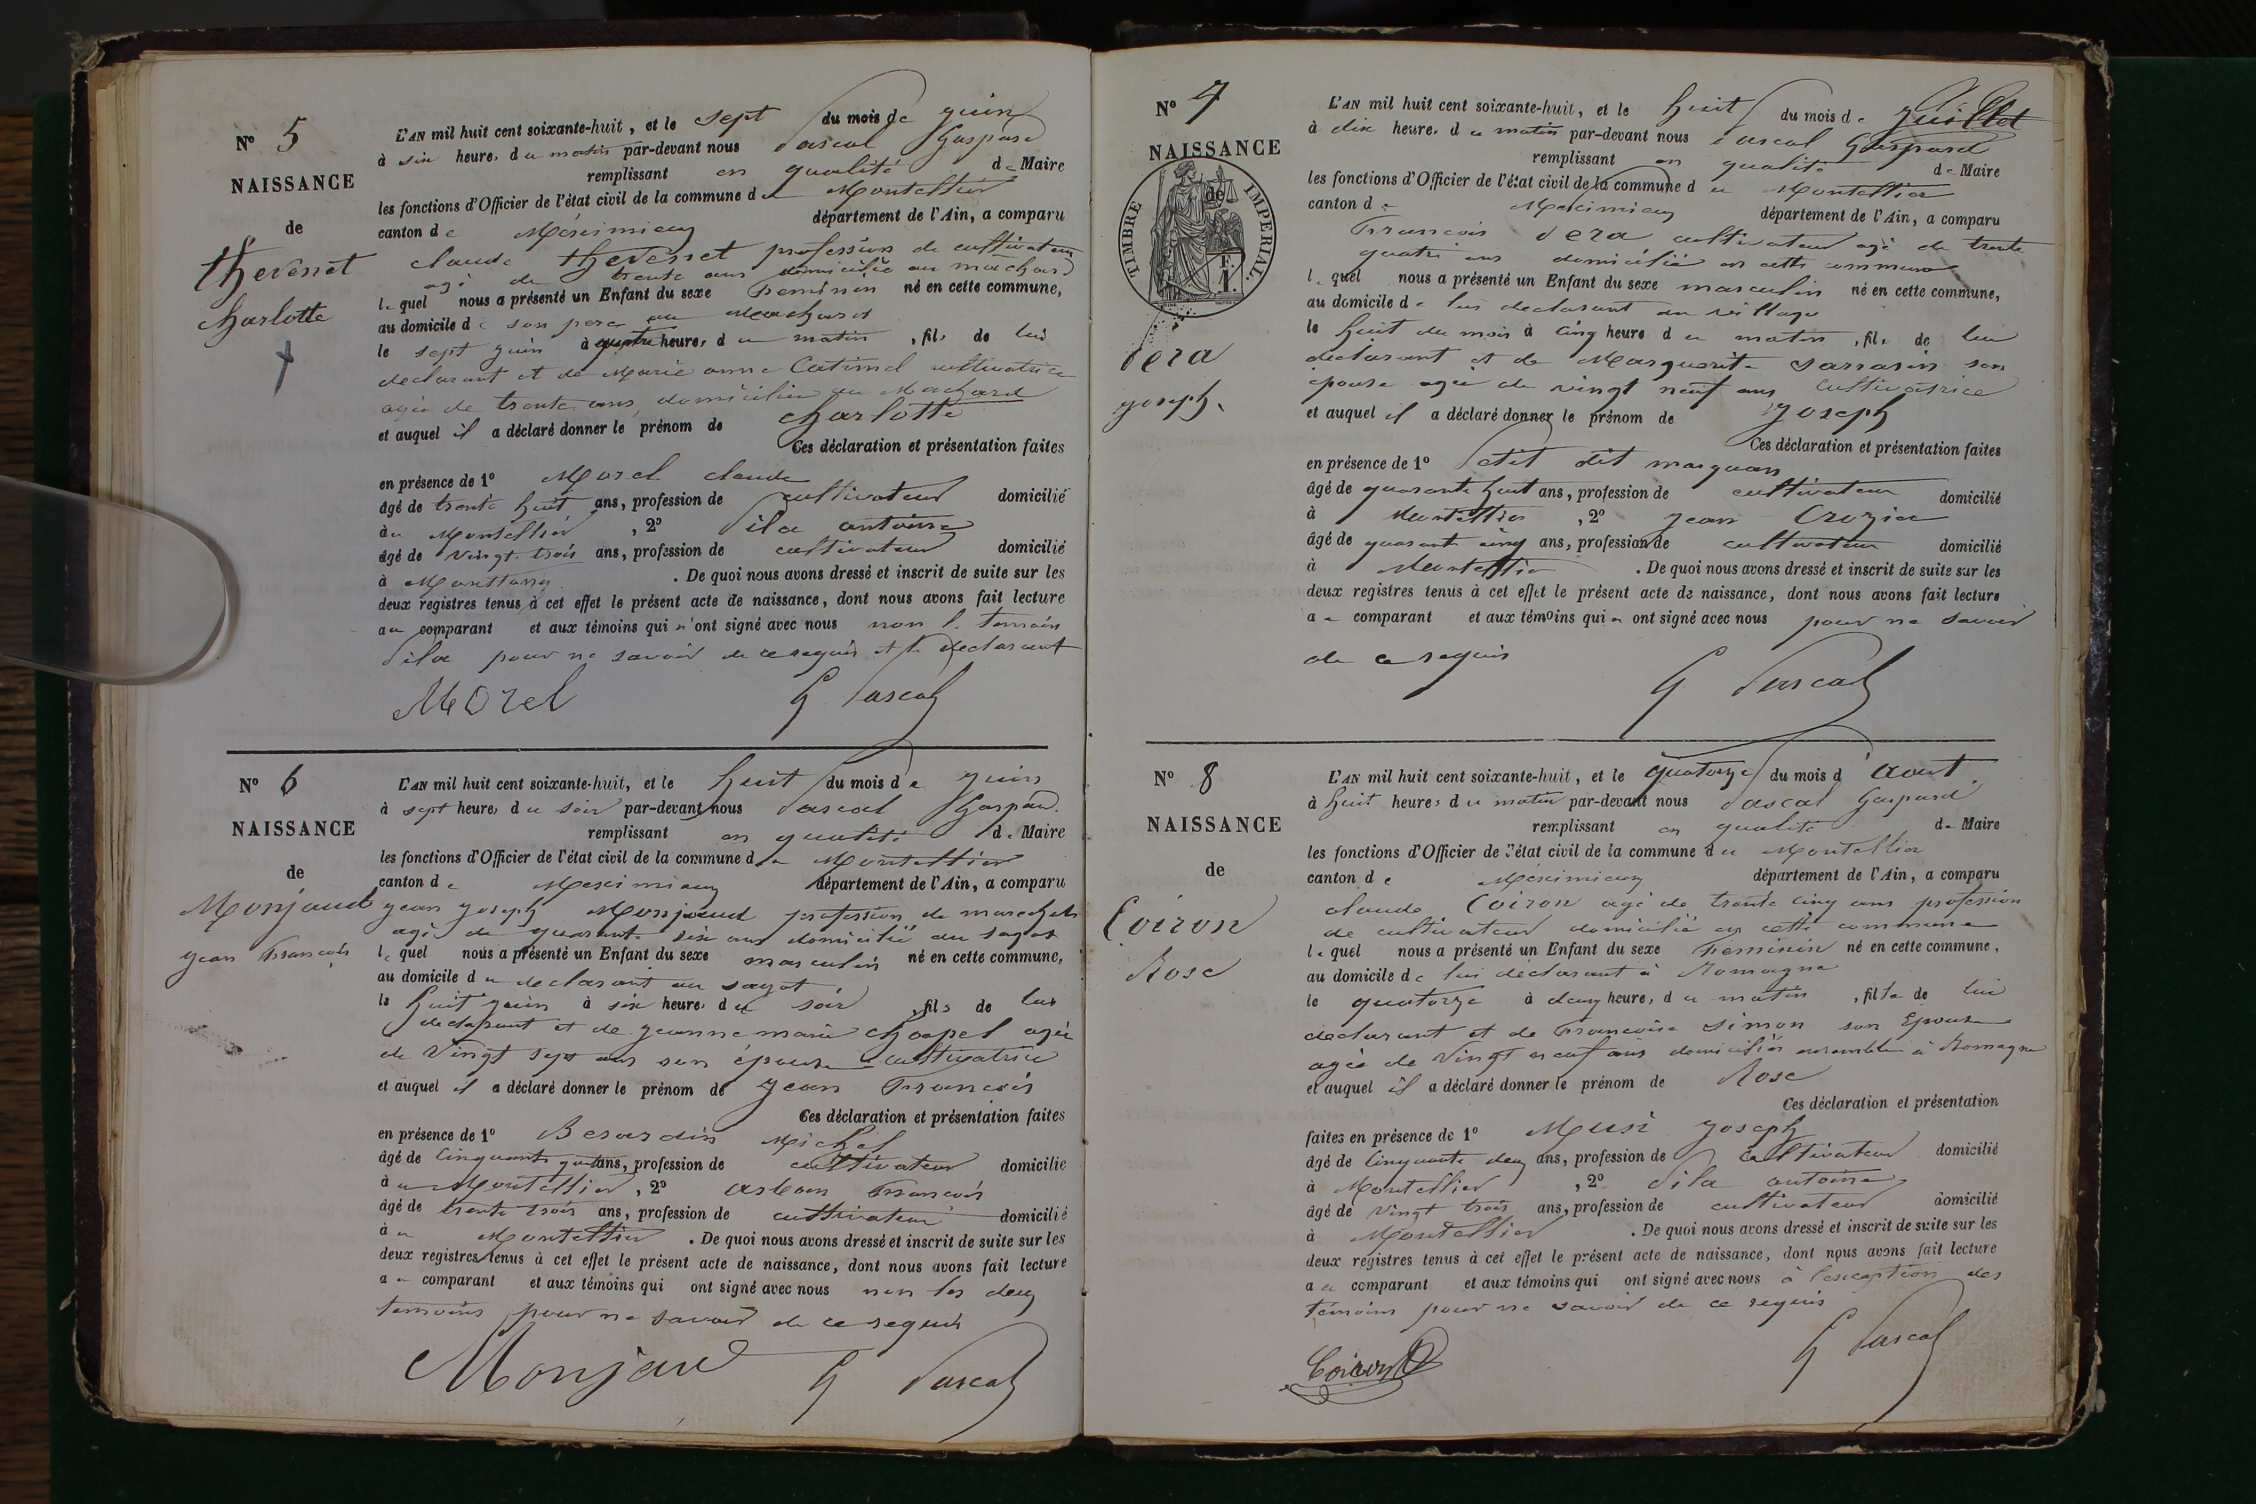 N° 5
NAISSANCE
de
thevenet
charlotte
L'AN mil huit cent soixante-huit, et le sept du mois de juin
à six heures du matin par-devant nous Pascal Gaspard
remplissant en qualité de Maire
les fonctions d'Officier de l'état civil de la commune de Montellier
canton de Meximieux département de l'Ain, a comparu
claude thevenet profession de cultivateur
agé de trente ans domicilié au machard
lequel nous a présenté un Enfant du sexe Feminin né en cette commune,
au domicile de son pere au Machard
le sept juin à quatre heures du matin, fils de lui
declarant et de Marie anne Catimel cultivatrice
agée de trente ans domicilié au Machard
et auquel il a déclaré donner le prénom de charlotte
Ces déclaration et présentation faites
en présence de 1° Morel claude
âgé de trente huit ans, profession de cultivateur domicilié
au Montellier, 2° Pila antoine
âgé de vingt trois ans, profession de cultivateur domicilié
à . De quoi nous avons dressé et inscrit de suite sur les
deux registres tenus à cet effet le présent acte de naissance, dont nous avons fait lecture
au comparant et aux témoins qui n'ont signé avec nous non l. temoin
Pila pour ne savoir de ce requis et le declarant
Morel G Pascal
N° 6
NAISSANCE
de
Monjaud
jean Francois
L'AN mil huit cent soixante-huit, et le huit du mois de juin
à sept heures du soir par-devant nous Pascal Gaspard
remplissant en qualité de Maire
les fonctions d'Officier de l'état civil de la commune de Montellier
canton de Meximieux département de l'Ain, a comparu
jean joseph Monjaud profession de marechal
agé de quarante six ans domicilié au sayot
lequel nous a présenté un Enfant du sexe masculin né en cette commune,
au domicile du declarant au sayot
le huit juin à six heures du soir, fils de lui
declarant et de jeanne marie chapel agée
de vingt sept ans son épouse cultivatrice
et auquel il a déclaré donner le prénom de jean Francois
Ces déclaration et présentation faites
en présence de 1° Berardin Michel
âgé de Cinquante ans, profession de cultivateur domicilié
au Montellier, 2° Francois
âgé de trente trois ans, profession de cultivateur domicilié
au Montellier. De quoi nous avons dressé et inscrit de suite sur les
deux registres tenus à cet effet le présent acte de naissance, dont nous avons fait lecture
au comparant et aux témoins qui ont signé avec nous non les deux
temoins pour ne savoir de ce requis
Monjaud G Pascal
N° 7
NAISSANCE
de
TIMBRE IMPERIAL
Pera
joseph.
L'AN mil huit cent soixante-huit, et le huit du mois de juillet
à dix heures du matin par-devant nous Pascal Gaspard
remplissant en qualité de Maire
les fonctions d'Officier de l'état civil de la commune du Montellier
canton de Meximieux département de l'Ain, a comparu
Francois Pera cultivateur agé de trente
quatre ans domicilié en cette commune
lequel nous a présenté un Enfant du sexe masculin né en cette commune,
au domicile de lui declarant au village
le huit du mois à cinq heures du matin, fils de lui
declarant et de Marguerite Sarrasin son
épouse agée de vingt neuf ans cultivatrice
et auquel il a déclaré donner le prénom de joseph
Ces déclaration et présentation faites
en présence de 1° Petit dit
âgé de quarante huit ans, profession de cultivateur domicilié
à Montellier, 2° jean Crozier
âgé de quarante cinq ans, profession de cultivateur domicilié
à Montellier. De quoi nous avons dressé et inscrit de suite sur les
deux registres tenus à cet effet le présent acte de naissance, dont nous avons fait lecture
au comparant et aux témoins qui n ont signé avec nous pour ne savoir
de ce requis
G Pascal
N° 8
NAISSANCE
de
Coiron
Rose
L'AN mil huit cent soixante-huit, et le quatorze du mois d aout.
à huit heures du matin par-devant nous Pascal Gaspard
remplissant en qualité de Maire
les fonctions d'Officier de l'état civil de la commune du Montellier
canton de Meximieux département de l'Ain, a comparu
claude Coiron agé de trente cinq ans profession
de cultivateur domicilié en cette commune
lequel nous a présenté un Enfant du sexe Feminin né en cette commune,
au domicile de lui déclarant à Romagne
le quatorze à deux heures du matin, fille de lui
declarant et de Francoise Simon son Epouse
agée de vingt neuf ans domiciliés ensemble à Romagne
et auquel il a déclaré donner le prénom de Rose
Ces déclaration et présentation
faites en présence de 1° joseph
âgé de Cinquante deux ans, profession de cultivateur domicilié
à Montellier, 2° Pila antoine
âgé de vingt trois ans, profession de cultivateur domicilié
à Montellier. De quoi nous avons dressé et inscrit de suite sur les
deux registres tenus à cet effet le présent acte de naissance, dont nous avons fait lecture
au comparant et aux témoins qui ont signé avec nous à l'exception des
témoins pour ne savoir de ce requis
Coiron G Pascal